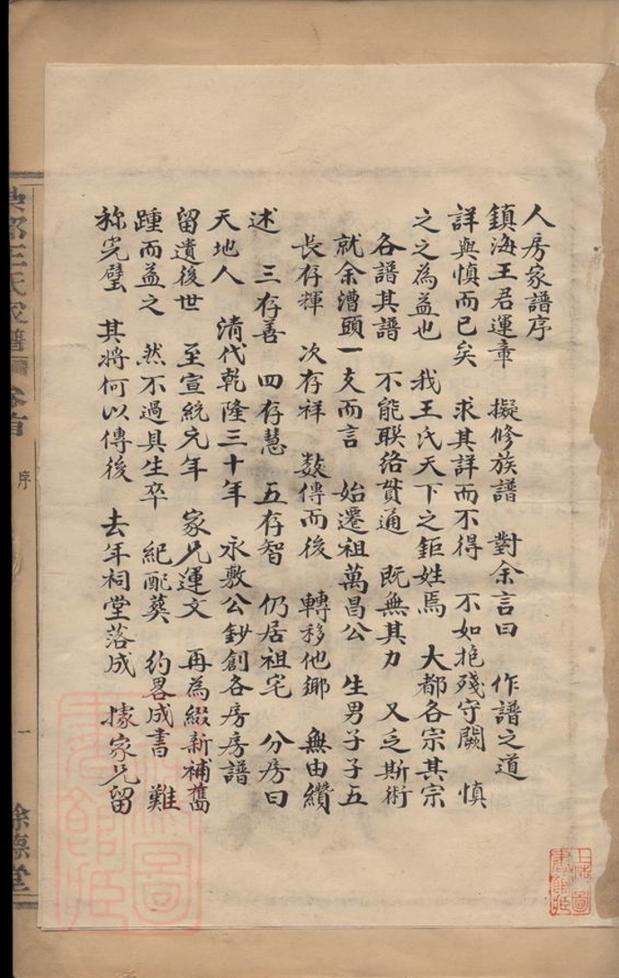 人房家譜序
鎮海王君運章　擬修族譜　對余言曰　作譜之道
詳與慎而已矣　求其詳而不得　不如抱殘守闕　慎
之之為益也　我王氏天下之鉅姓焉　大都各宗其宗
各譜其譜　不能聯絡貫通　既無其力　又乏斯術
就余漕頭一支而言　始遷祖萬昌公　生男子子五
長存輝　次存祥　数傳而後　轉移他鄉　無由纘
述　三存善　四存慧　五存智　仍居祖宅　分房曰
天地人　清代乾隆三十年　永敷公鈔創各房房譜
留遺後世　至宣統元年　家兄運文　再為綴新補舊
踵而益之　然不過具生卒　紀配葬　約畧成書　難
称完璧　其將何以傳後　去年祠堂落成　據家兄留
王氏家譜
卷首
序
一
餘德堂